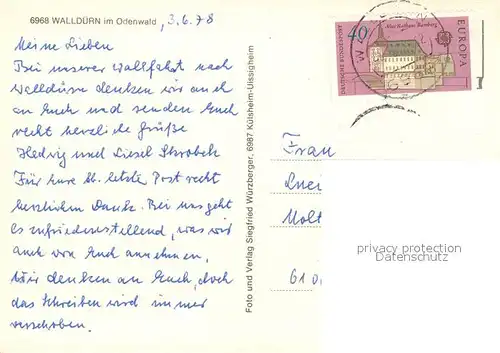 6968 WALLDÜRN im Odenwald , 3.6.78
Meine Lieben
Bei unserer Wallfahrt nach
Walldürn denken wir auch
an Euch und senden Euch
recht herzliche Grüße
Hedwig und Liesel Skrobek
Für Eure lb. letzte Post recht
herzlichen Dank. Bei uns geht
es zufriedenstellend, was wir
auch von Euch annehmen.
Wir denken an Euch, doch
das Schreiben wird immer
verschoben.
Foto und Verlag Siegfried Würzberger, 6987 Külsheim-Uissigheim
DEUTSCHE BUNDESPOST
40
Altes Rathaus Bamberg
EUROPA
Frau
Luci
Molt
610
privacy protection
Datenschutz